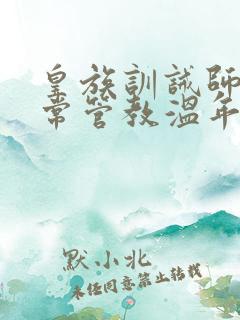 皇族訓誡師
常管教溫年
默小北
未經同意禁止轉載